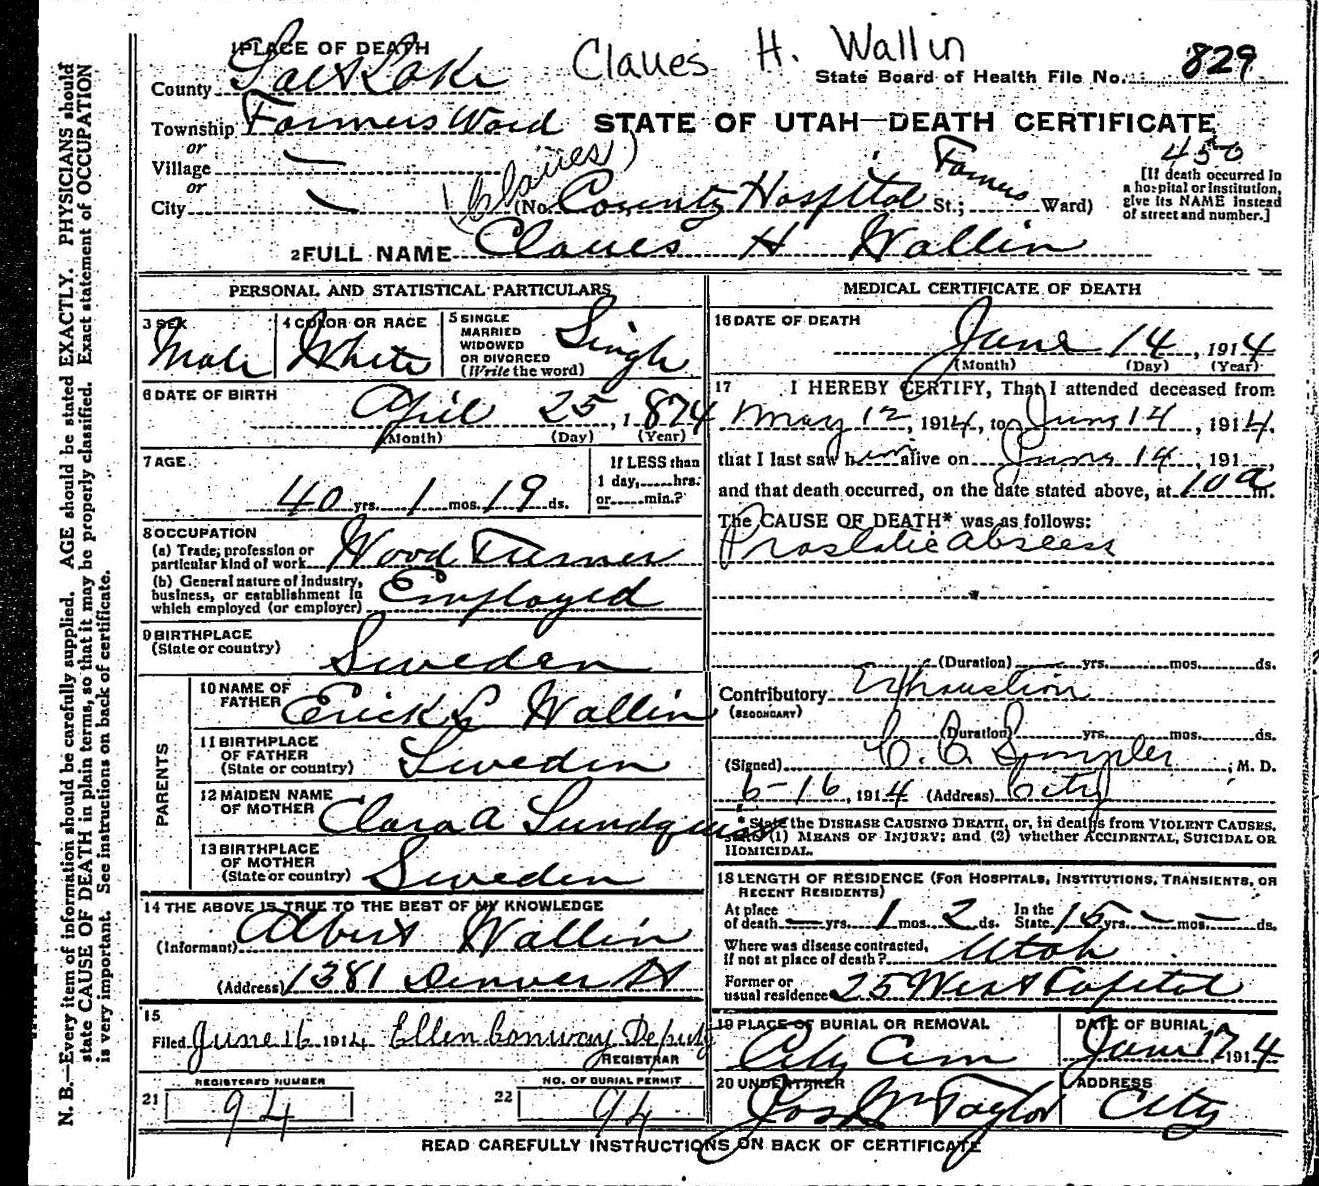 N. B.—Every item of information should be carefully supplied. AGE should be stated EXACTLY. PHYSICIANS should
state CAUSE OF DEATH in plain terms, so that it may be properly classified. Exact statement of OCCUPATION
is very important. See instructions on back of certificate.
Claues H. Wallin
1 PLACE OF DEATH
County Salt Lake
State Board of Health File No. 829
Township Farmers Ward
STATE OF UTAH—DEATH CERTIFICATE
or
Village —
450
or
City —
(Claues)
(No. County Hospital St.; Farmers Ward)
[If death occurred in
a hospital or institution,
give its NAME instead
of street and number.]
2 FULL NAME Claues H Wallin
PERSONAL AND STATISTICAL PARTICULARS
3 SEX Male
4 COLOR OR RACE White
5 SINGLE
MARRIED
WIDOWED
OR DIVORCED
(Write the word) Single
6 DATE OF BIRTH
April 25, 1874
(Month) (Day) (Year)
7 AGE
40 yrs. 1 mos. 19 ds.
If LESS than
1 day, hrs.
or min.?
8 OCCUPATION
(a) Trade, profession or
particular kind of work Wood Turner
(b) General nature of industry,
business, or establishment in
which employed (or employer) Employed
9 BIRTHPLACE
(State or country) Sweden
PARENTS
10 NAME OF
FATHER Erick L Wallin
11 BIRTHPLACE
OF FATHER
(State or country) Sweden
12 MAIDEN NAME
OF MOTHER Clara A Lundquist
13 BIRTHPLACE
OF MOTHER
(State or country) Sweden
14 THE ABOVE IS TRUE TO THE BEST OF MY KNOWLEDGE
(Informant) Albert Wallin
(Address) 1381 Denver St
15
Filed June 16 1914 Ellen Conway Deputy
REGISTRAR
REGISTERED NUMBER
21 94
NO. OF BURIAL PERMIT
22 94
MEDICAL CERTIFICATE OF DEATH
16 DATE OF DEATH
June 14, 1914
(Month) (Day) (Year)
17 I HEREBY CERTIFY, That I attended deceased from
May 12, 1914, to June 14, 1914,
that I last saw him alive on June 14, 191 ,
and that death occurred, on the date stated above, at 10 a m.
The CAUSE OF DEATH* was as follows:
Prostatic abscess
(Duration) yrs. mos. ds.
Contributory Exhaustion
(SECONDARY)
(Duration) yrs. mos. ds.
(Signed) C. C. , M. D.
6-16, 1914 (Address) City
* State the DISEASE CAUSING DEATH, or, in deaths from VIOLENT CAUSES,
(1) MEANS OF INJURY; and (2) whether ACCIDENTAL, SUICIDAL OR
HOMICIDAL.
18 LENGTH OF RESIDENCE (FOR HOSPITALS, INSTITUTIONS, TRANSIENTS, OR
RECENT RESIDENTS)
At place
of death — yrs. 1 mos. 2 ds. In the
State 15 yrs. — mos. — ds.
Where was disease contracted,
if not at place of death? Utah
Former or
usual residence 25 West Capitol
19 PLACE OF BURIAL OR REMOVAL
City Cem
DATE OF BURIAL
June 17 1914
20 UNDERTAKER
Jos Wm Taylor
ADDRESS
City
READ CAREFULLY INSTRUCTIONS ON BACK OF CERTIFICATE